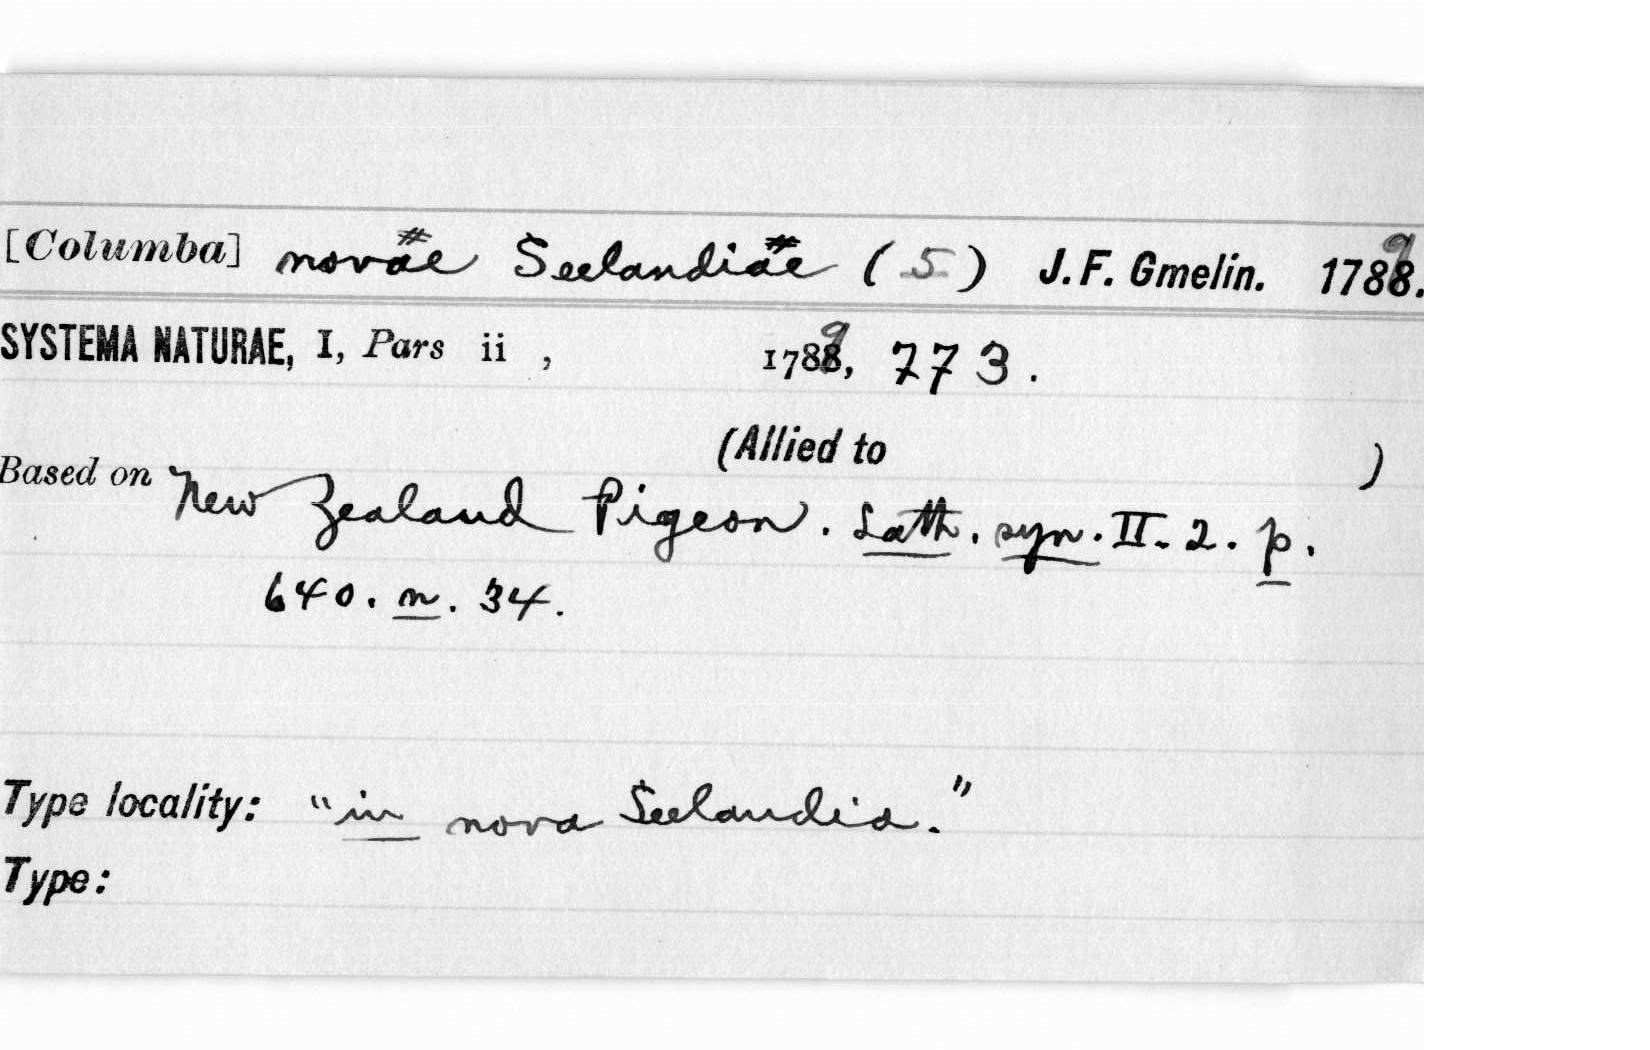 [Columba] novae Seelandiae (5) J.F. Gmelin. 1789.
SYSTEMA NATURAE, I, Pars ii , 1789, 773.
(Allied to )
Based on New Zealand Pigeon. Lath. syn. II. 2. p.
640. n. 34.
Type locality: "in nova Seelandia."
Type: